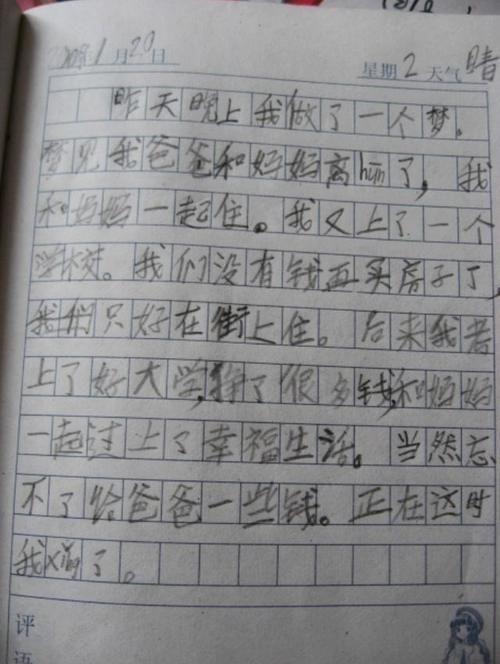 月20日 星期2天气晴
昨天晚上我做了一个梦。
梦见我爸爸和妈妈离hūn了，我
和妈妈一起住。我又上了一个
学校。我们没有钱再买房子了，
我们只好在街上住。后来我考
上了好大学，挣了很多钱，和妈妈
一起过上了幸福生活。当然忘
不了给爸爸一些钱。正在这时
我xǐng了。
评
语